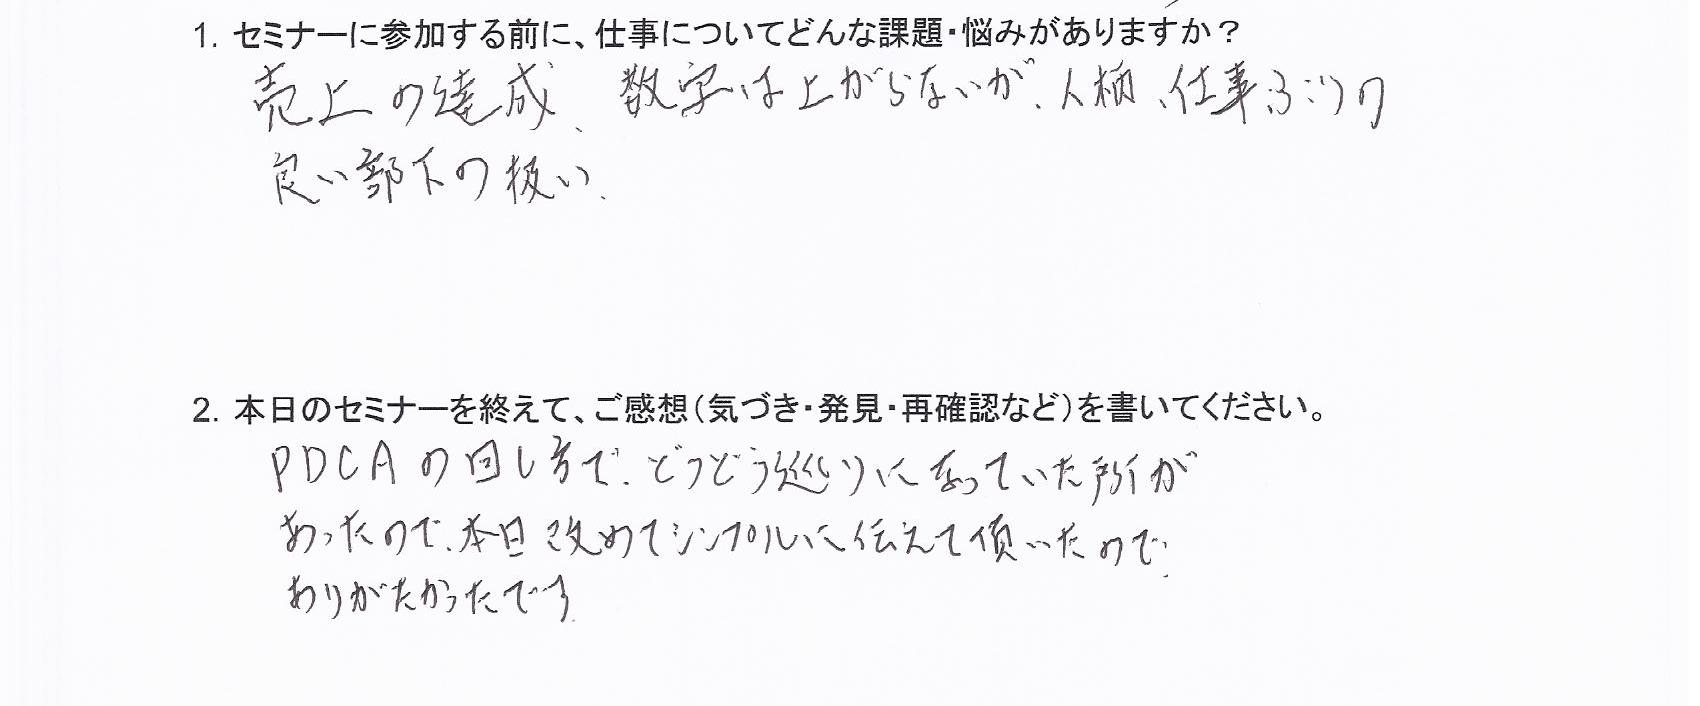 1. セミナーに参加する前に、仕事についてどんな課題・悩みがありますか？
売上の達成、数字は上がらないが、人柄、仕事ぶりの
良い部下の扱い、
2. 本日のセミナーを終えて、ご感想（気づき・発見・再確認など）を書いてください。
PDCAの回し方で、どうどう巡りになっていた所が
あったので、本日改めてシンプルに伝えて頂いたので、
ありがたかったです。